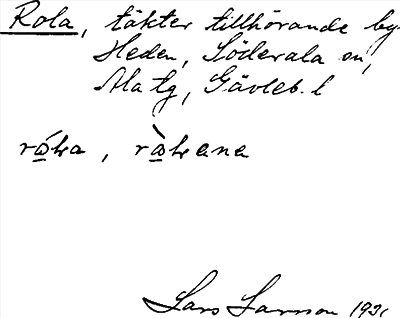 Rola, täkter tillhörande by.
Heden, Söderala sn,
Ala tg, Gävleb. l
Lars Larsson 1931